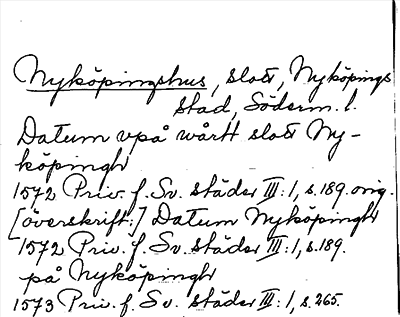 Nyköpingshus, slott, Nyköpings
stad, Söderm. l.
Datum vpå wårtt slott Ny-
köpingh
1572 Priv. f. Sv. städer III:1, s. 189. orig.
[överskrift:] Datum Nyköpingh
1572 Priv. f. Sv. städer III:1, s. 189.
på Nyköpingh
1573 Priv. f. Sv. städer III:1, s. 265.